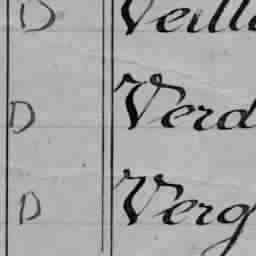 D Veill
D Verd
D Verg